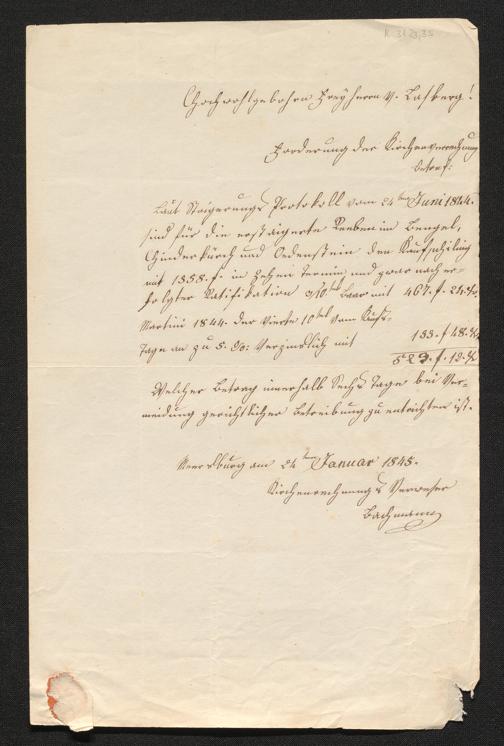 K 3123,35
Hochwohlgebohrn Freyherrn v. Laßberg!
Forderung der Kirchenrechnung
betref:
Laut Steigerungs Protokoll vom 24ten Juni 1844.
sind für die ersteigerte Reeben im Bengel,
und Oedenstein den Kaufschiling
mit 1358. f. in Zehen Termin und zwar nach er-
folgter Ratifikation Baar mit 467. f. 24.
Martini 1844. der Vierte 10tel vom Kauf-
Tage an zu 5 %: Verzinslich mit 133. f 48.
f. 12.
Welcher Betrag innerhalb Sechs Tage bei Ver-
meidung gerichtlicher Betreibung zu entrichten ist.
Meersburg am 24ten Januar 1845.
Kirchenrechnungs Verweser
Bachmann